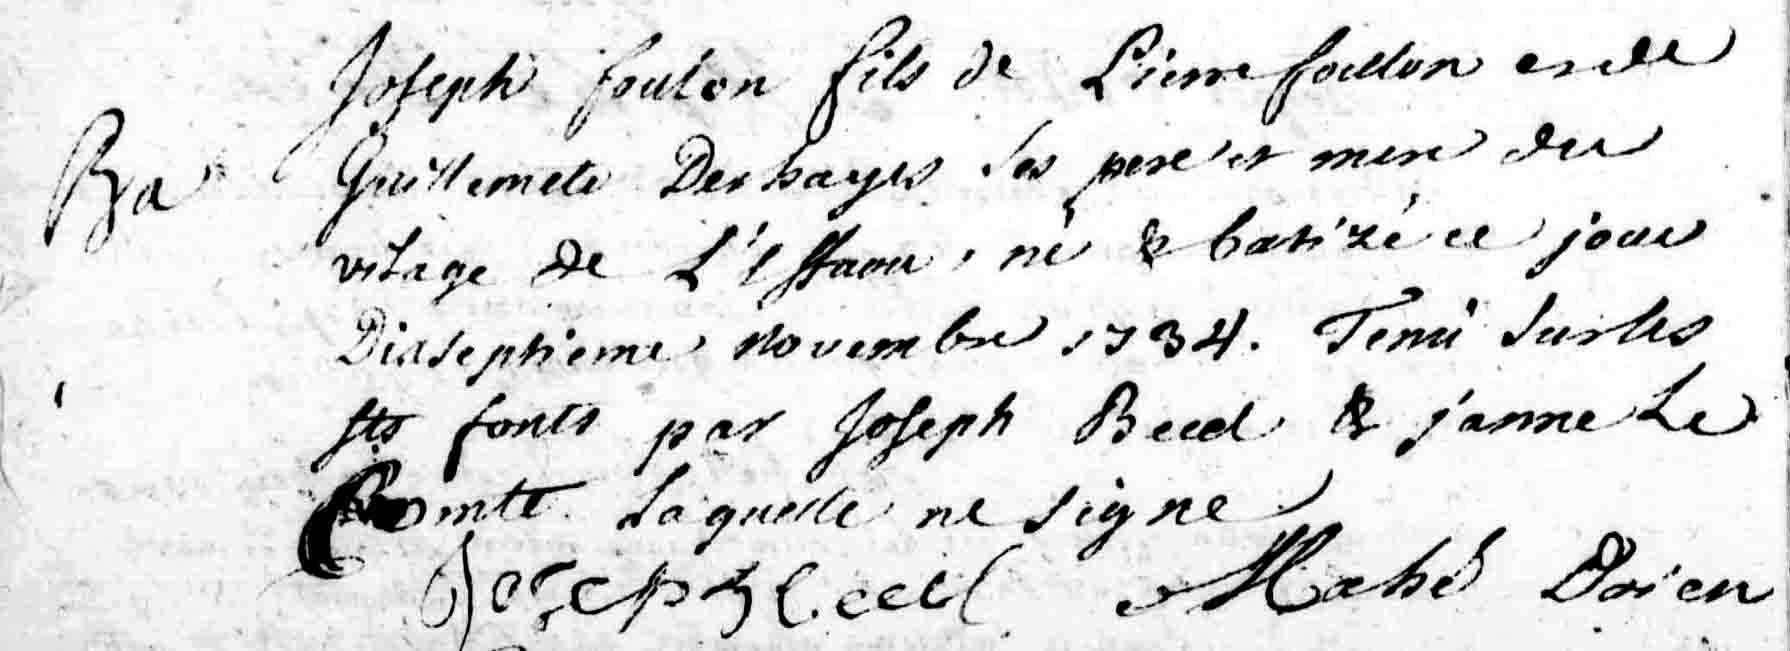 Joseph foulon fils de Pierre foullon et de
Ba Guillemete Deshayes ses pere et mere du
vilage de L'effaou, né & batizé ce jour
Dixseptieme Novembre 1734. Tenu sur les
sts fonts par Joseph Becel & janne Le
Comte Laquelle ne signe
Joseph becel Mahé Doien